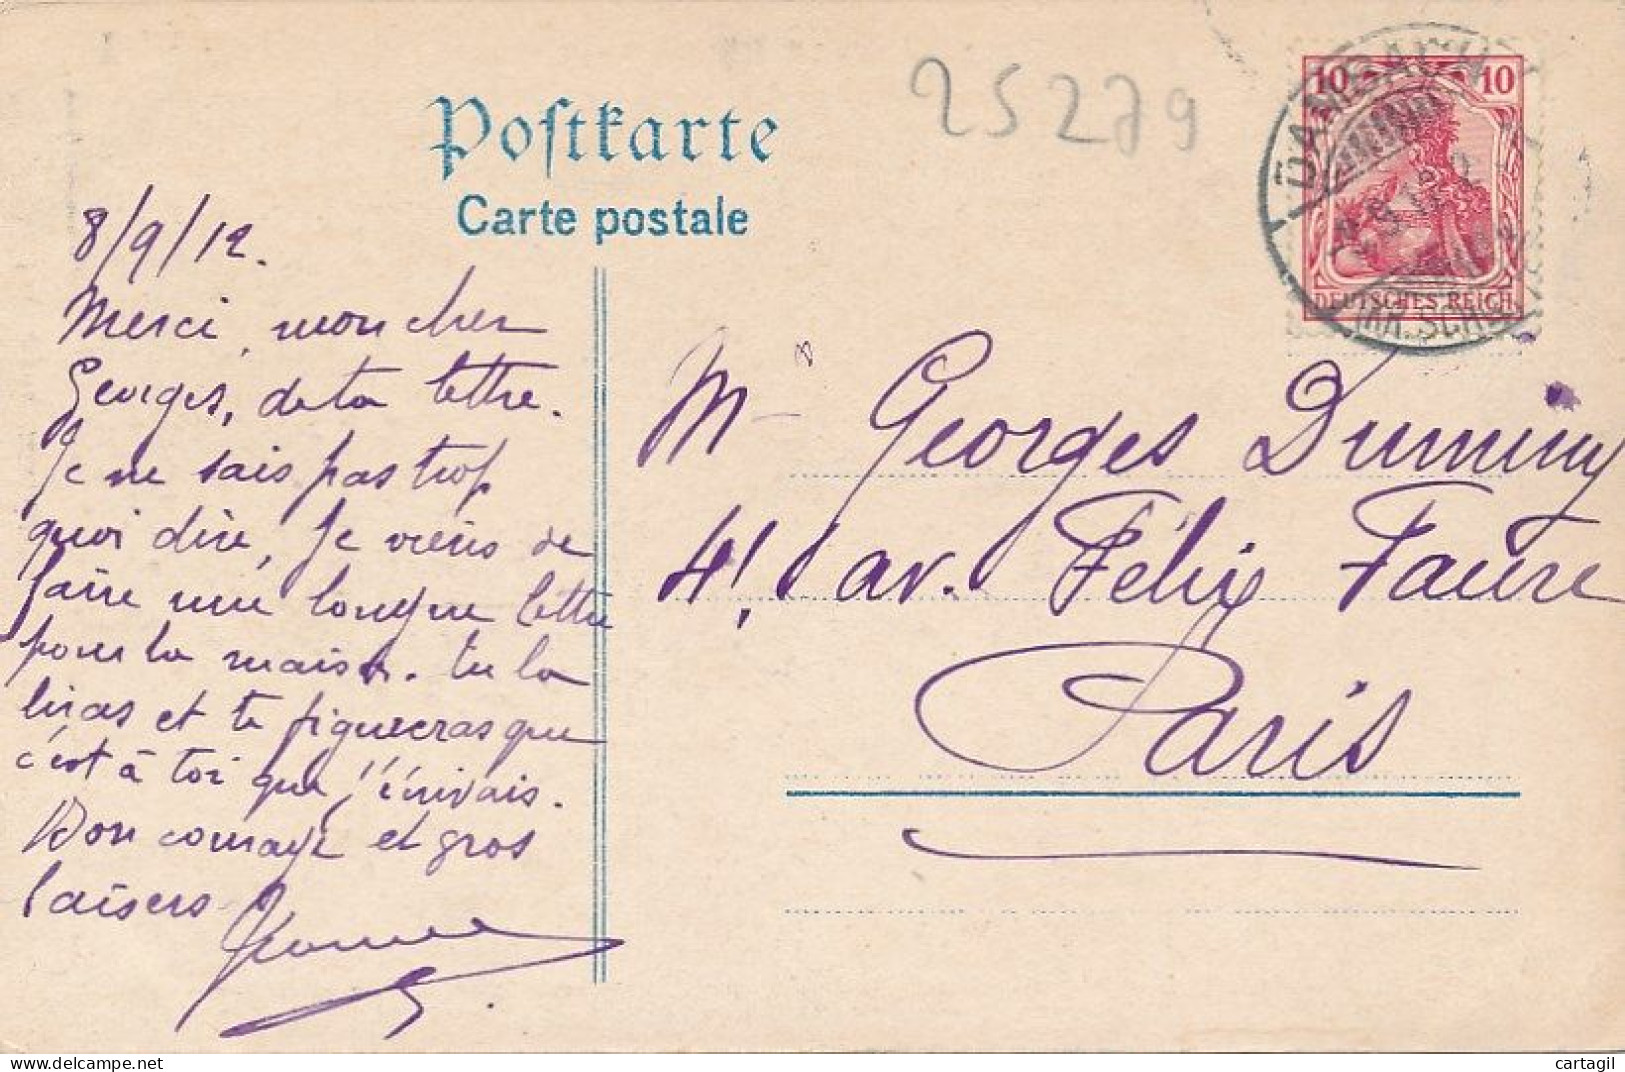 25279
Postkarte
Carte postale
10 10
DAMBACH
DEUTSCHES REICH
8/9/12.
Merci, mon cher
Georges, de ta lettre.
Je ne sais pas trop
quoi dire, Je viens de
faire une longue lettre
pour la maison. tu la
liras et te figureras que
c'est à toi que j'écrivais.
Bon courage et gros
baisers
Jeanne
Mr Georges Duminy
41 av. Félix Faure
Paris
cartagil